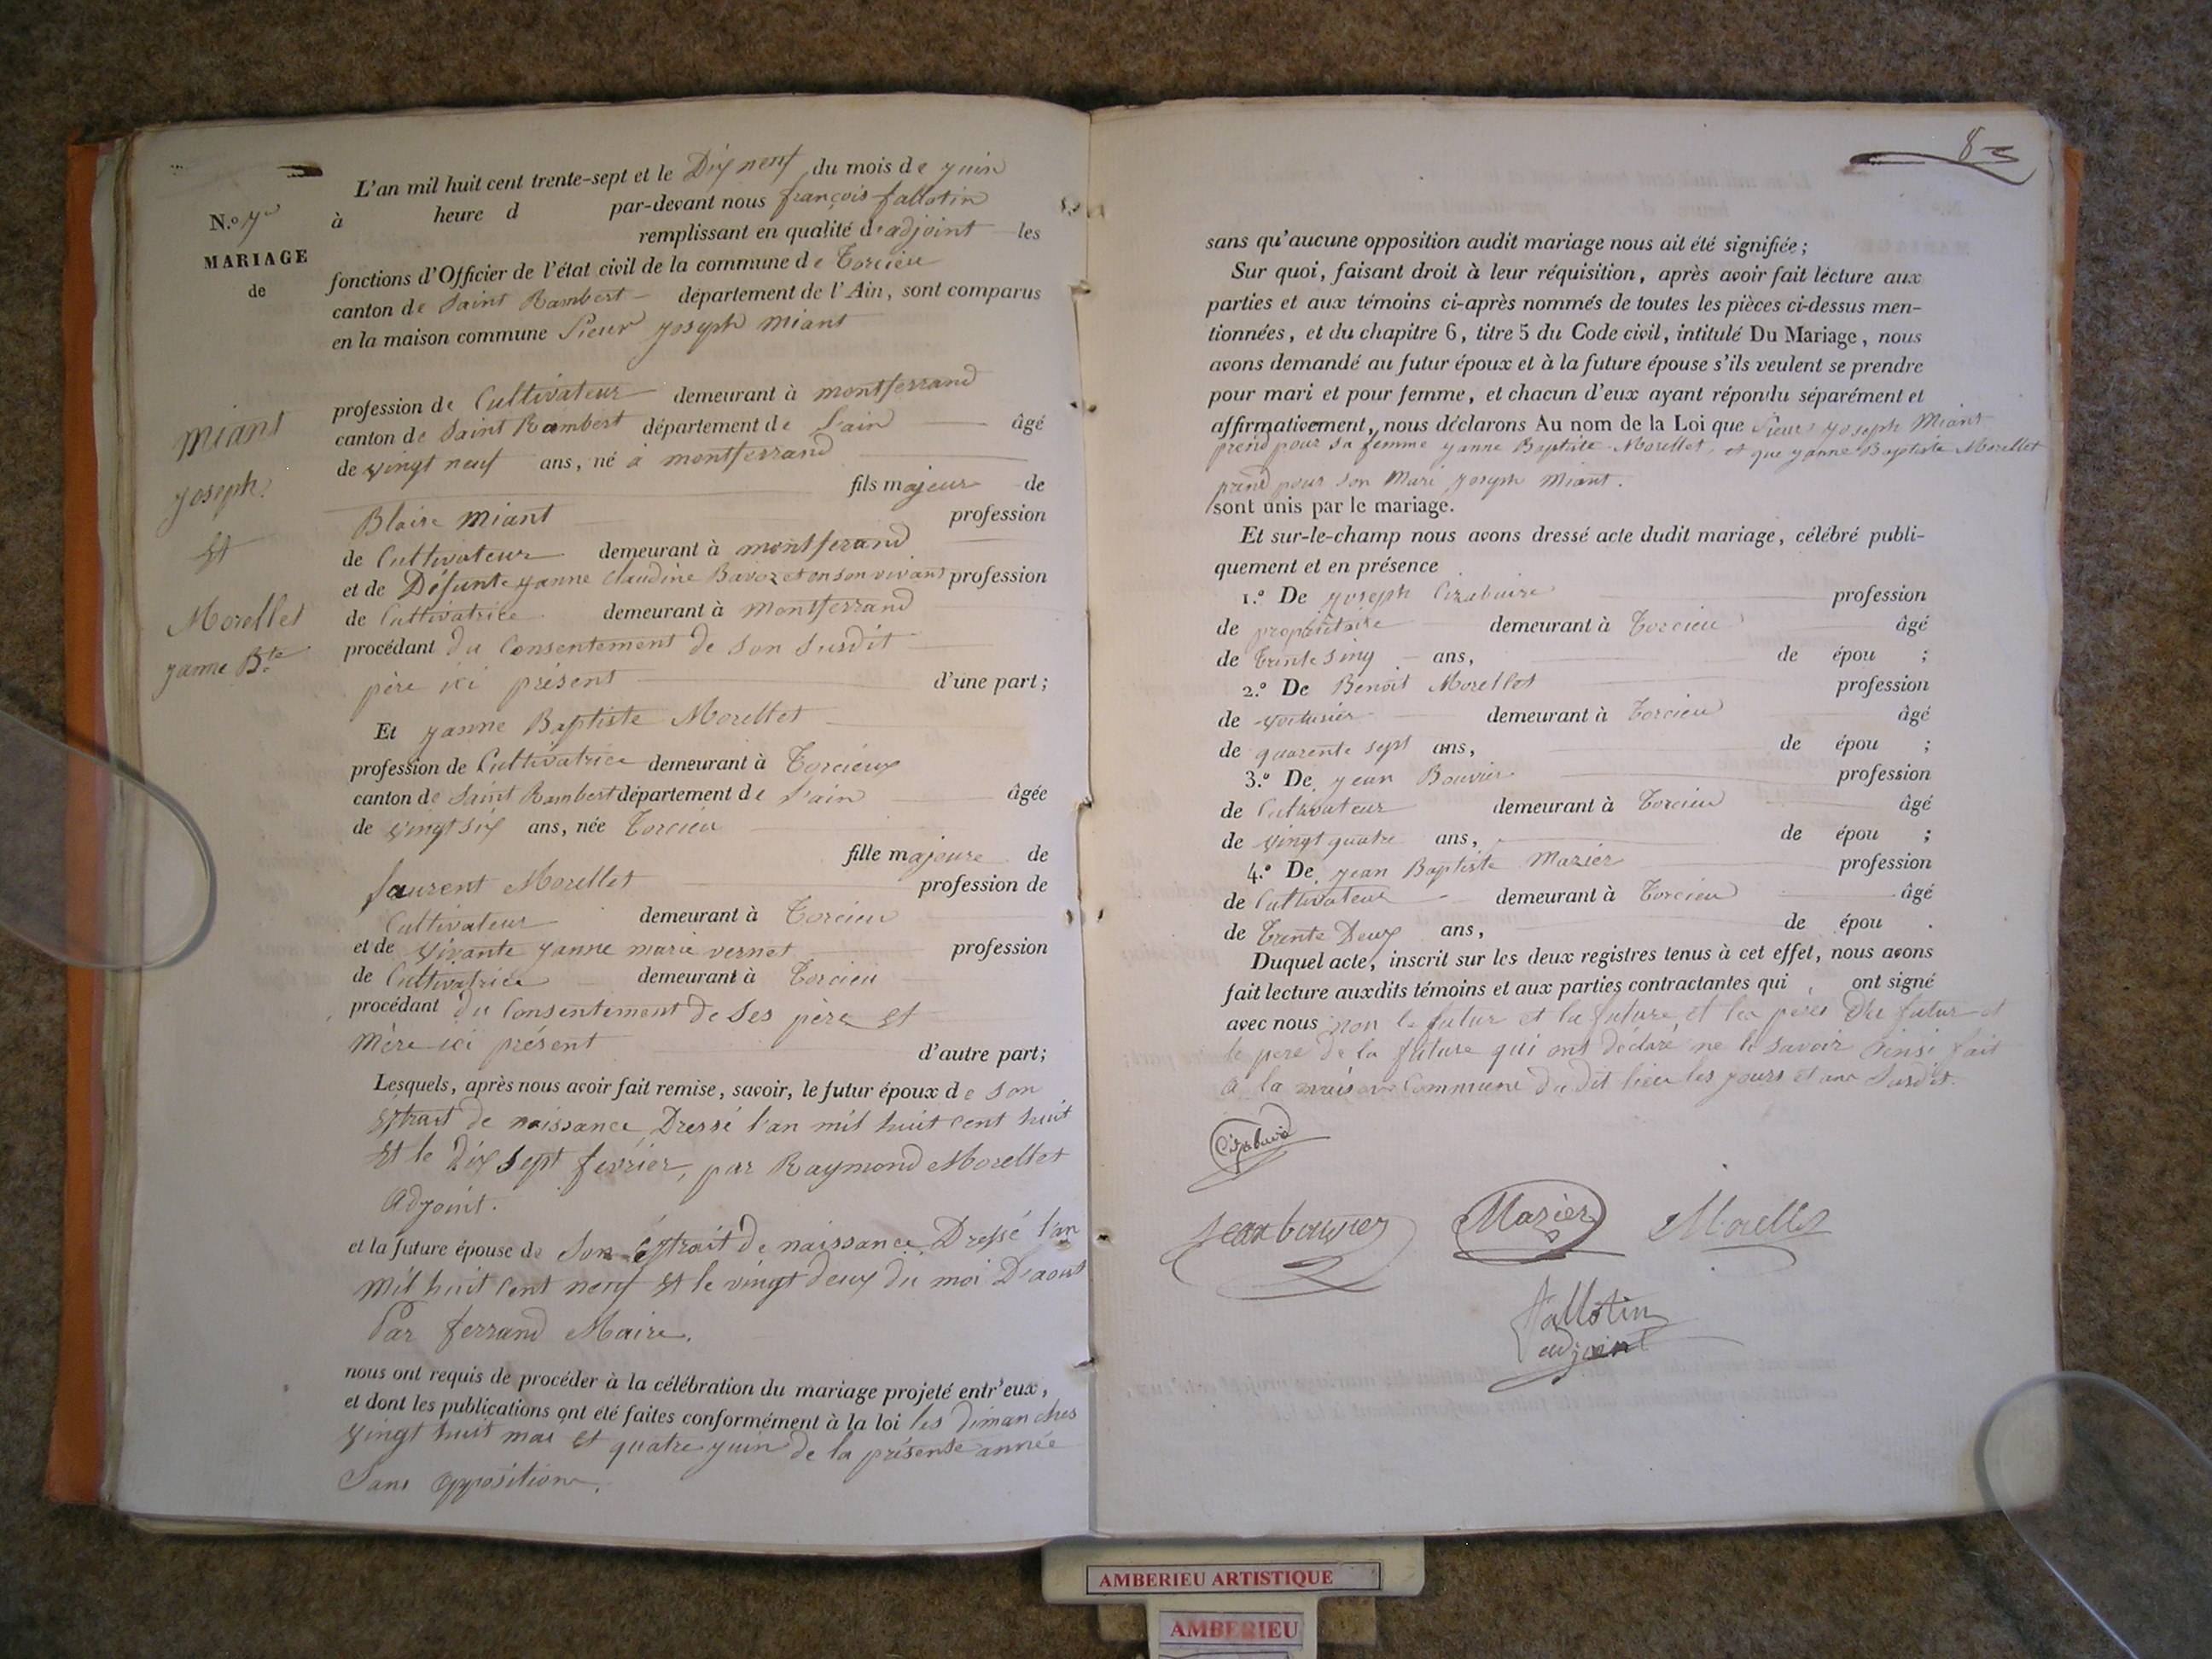 L'an mil huit cent trente-sept et le Dix neuf du mois de juin
à heure d par-devant nous françois fallotin
remplissant en qualité d'adjoint les
fonctions d'Officier de l'état civil de la commune de Torcieu
canton de Saint Rambert département de l'Ain, sont comparus
en la maison commune Sieur joseph Miant
profession de Cultivateur demeurant à montferrand
canton de Saint Rambert département de l'ain âgé
de vingt neuf ans, né à montferrand
fils majeur de
Blaise Miant profession
de Cultivateur demeurant à montferand
et de Défunte janne Claudine Bavozet en son vivant profession
de Cultivatrice demeurant à Montferrand
procédant du Consentement de son susdit
père ici présent d'une part;
Et janne Baptiste Morellet
profession de Cultivatrice demeurant à Torcieux
canton de Saint Rambert département de l'ain âgée
de vingt six ans, née Torcieu
fille majeure de
laurent Morellet profession de
Cultivateur demeurant à Torcieu
et de vivante janne marie vernet profession
de Cultivatrice demeurant à Torcieu
procédant du Consentement de ses père et
Mère ici présent d'autre part;
Lesquels, après nous avoir fait remise, savoir, le futur époux de son
extrait de naissance Dressé l'an mil huit cent huit
et le dix sept fevrier, par Raymond Morellet
Adjoint.
et la future épouse de son extrait de naissance Dressé l'an
Mil huit cent neuf et le vingt deux du moi D'aout
Par ferrand Maire.
nous ont requis de procéder à la célébration du mariage projeté entr'eux,
et dont les publications ont été faites conformément à la loi les dimanches
vingt huit mai et quatre juin de la présente année
Sans opposition.
N.º 7
MARIAGE
de
Miant
joseph
et
Morellet
janne Bte
83
sans qu'aucune opposition audit mariage nous ait été signifiée;
Sur quoi, faisant droit à leur réquisition, après avoir fait lecture aux
parties et aux témoins ci-après nommés de toutes les pièces ci-dessus men-
tionnées, et du chapitre 6, titre 5 du Code civil, intitulé Du Mariage, nous
avons demandé au futur époux et à la future épouse s'ils veulent se prendre
pour mari et pour femme, et chacun d'eux ayant répondu séparément et
affirmativement, nous déclarons Au nom de la Loi que Sieur joseph Miant
prend pour sa femme janne Baptiste Morellet, et que janne Baptiste Morellet
prend pour son Mari joseph Miant.
sont unis par le mariage.
Et sur-le-champ nous avons dressé acte dudit mariage, célébré publi-
quement et en présence
1.º De joseph profession
de propriétaire demeurant à Torcieu âgé
de trente sinq ans, de épou ;
2.º De Benoit Morellet profession
de voiturier demeurant à Torcieu âgé
de quarente sept ans, de épou ;
3.º De jean Bouvier profession
de Cultivateur demeurant à Torcieu âgé
de vingt quatre ans, de épou ;
4.º De jean Baptiste Mazier profession
de Cultivateur demeurant à Torcieu âgé
de Trente Deux ans, de épou .
Duquel acte, inscrit sur les deux registres tenus à cet effet, nous avons
fait lecture auxdits témoins et aux parties contractantes qui ont signé
avec nous non le futur et la future et les peres du futur et
le pere de la future qui ont déclaré ne le savoir ainsi fait
a la maison Commune du dit lieu les jours et an susdit.
jean bouvier
Mazier
Morellet
fallotin
adjoint
AMBERIEU ARTISTIQUE
AMBERIEU